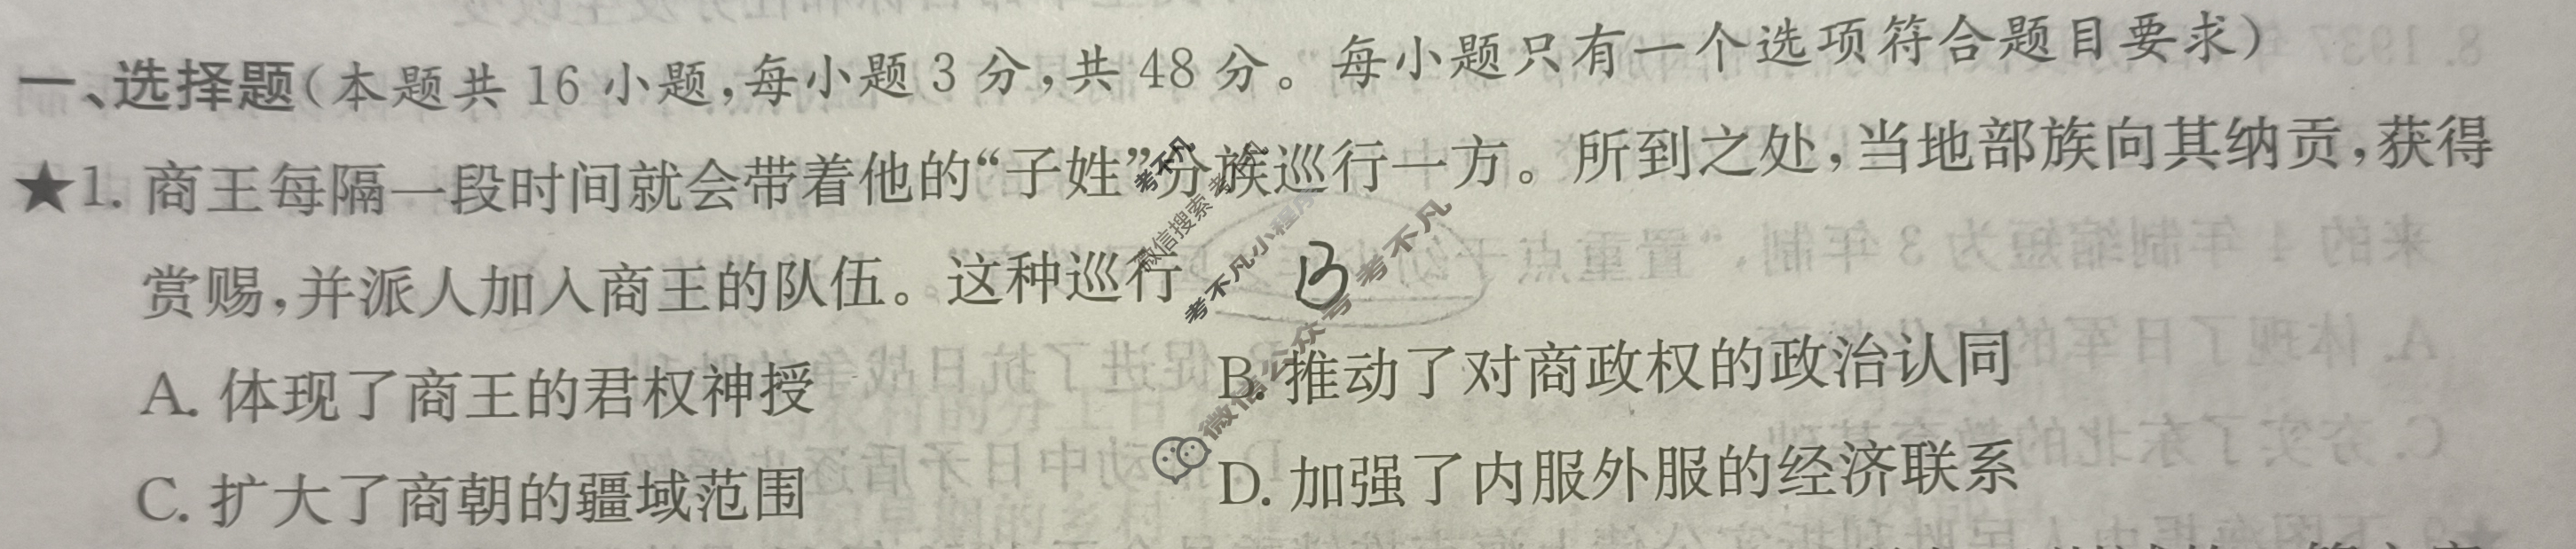 一、选择题(本题共 16 小题,每小题 3 分,共 48 分。每小题只有一个选项符合题目要求)
★1. 商王每隔一段时间就会带着他的“子姓”分族巡行一方。所到之处,当地部族向其纳贡,获得
赏赐,并派人加入商王的队伍。这种巡行 B
A. 体现了商王的君权神授
B. 推动了对商政权的政治认同
C. 扩大了商朝的疆域范围
D. 加强了内服外服的经济联系
考不凡
微信搜索
考不凡小程序
微信公众号 考不凡